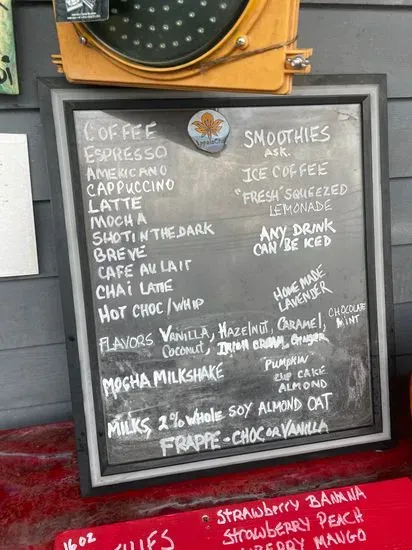 COFFEE
ESPRESSO
AMERICANO
CAPPUCCINO
LATTE
MOCHA
SHOT IN THE DARK
BREVE
CAFE AU LAIT
CHAI LATTE
HOT CHOC/WHIP
SMOOTHIES
ASK.
ICE COFFEE
"FRESH" SQUEEZED
LEMONADE
ANY DRINK
CAN BE ICED
HOMEMADE
LAVENDER
FLAVORS VANILLA, HAZELNUT, CARAMEL,
COCONUT, IRISH CREAM, GINGER
CHOCOLATE
MINT
"PUMPKIN"
CUP CAKE
ALMOND
MOCHA MILKSHAKE
MILKS, 2% WHOLE SOY ALMOND OAT
FRAPPE - CHOC OR VANILLA
16 OZ
STRAWBERRY BANANA
STROWBERRY PEACH
MANGO